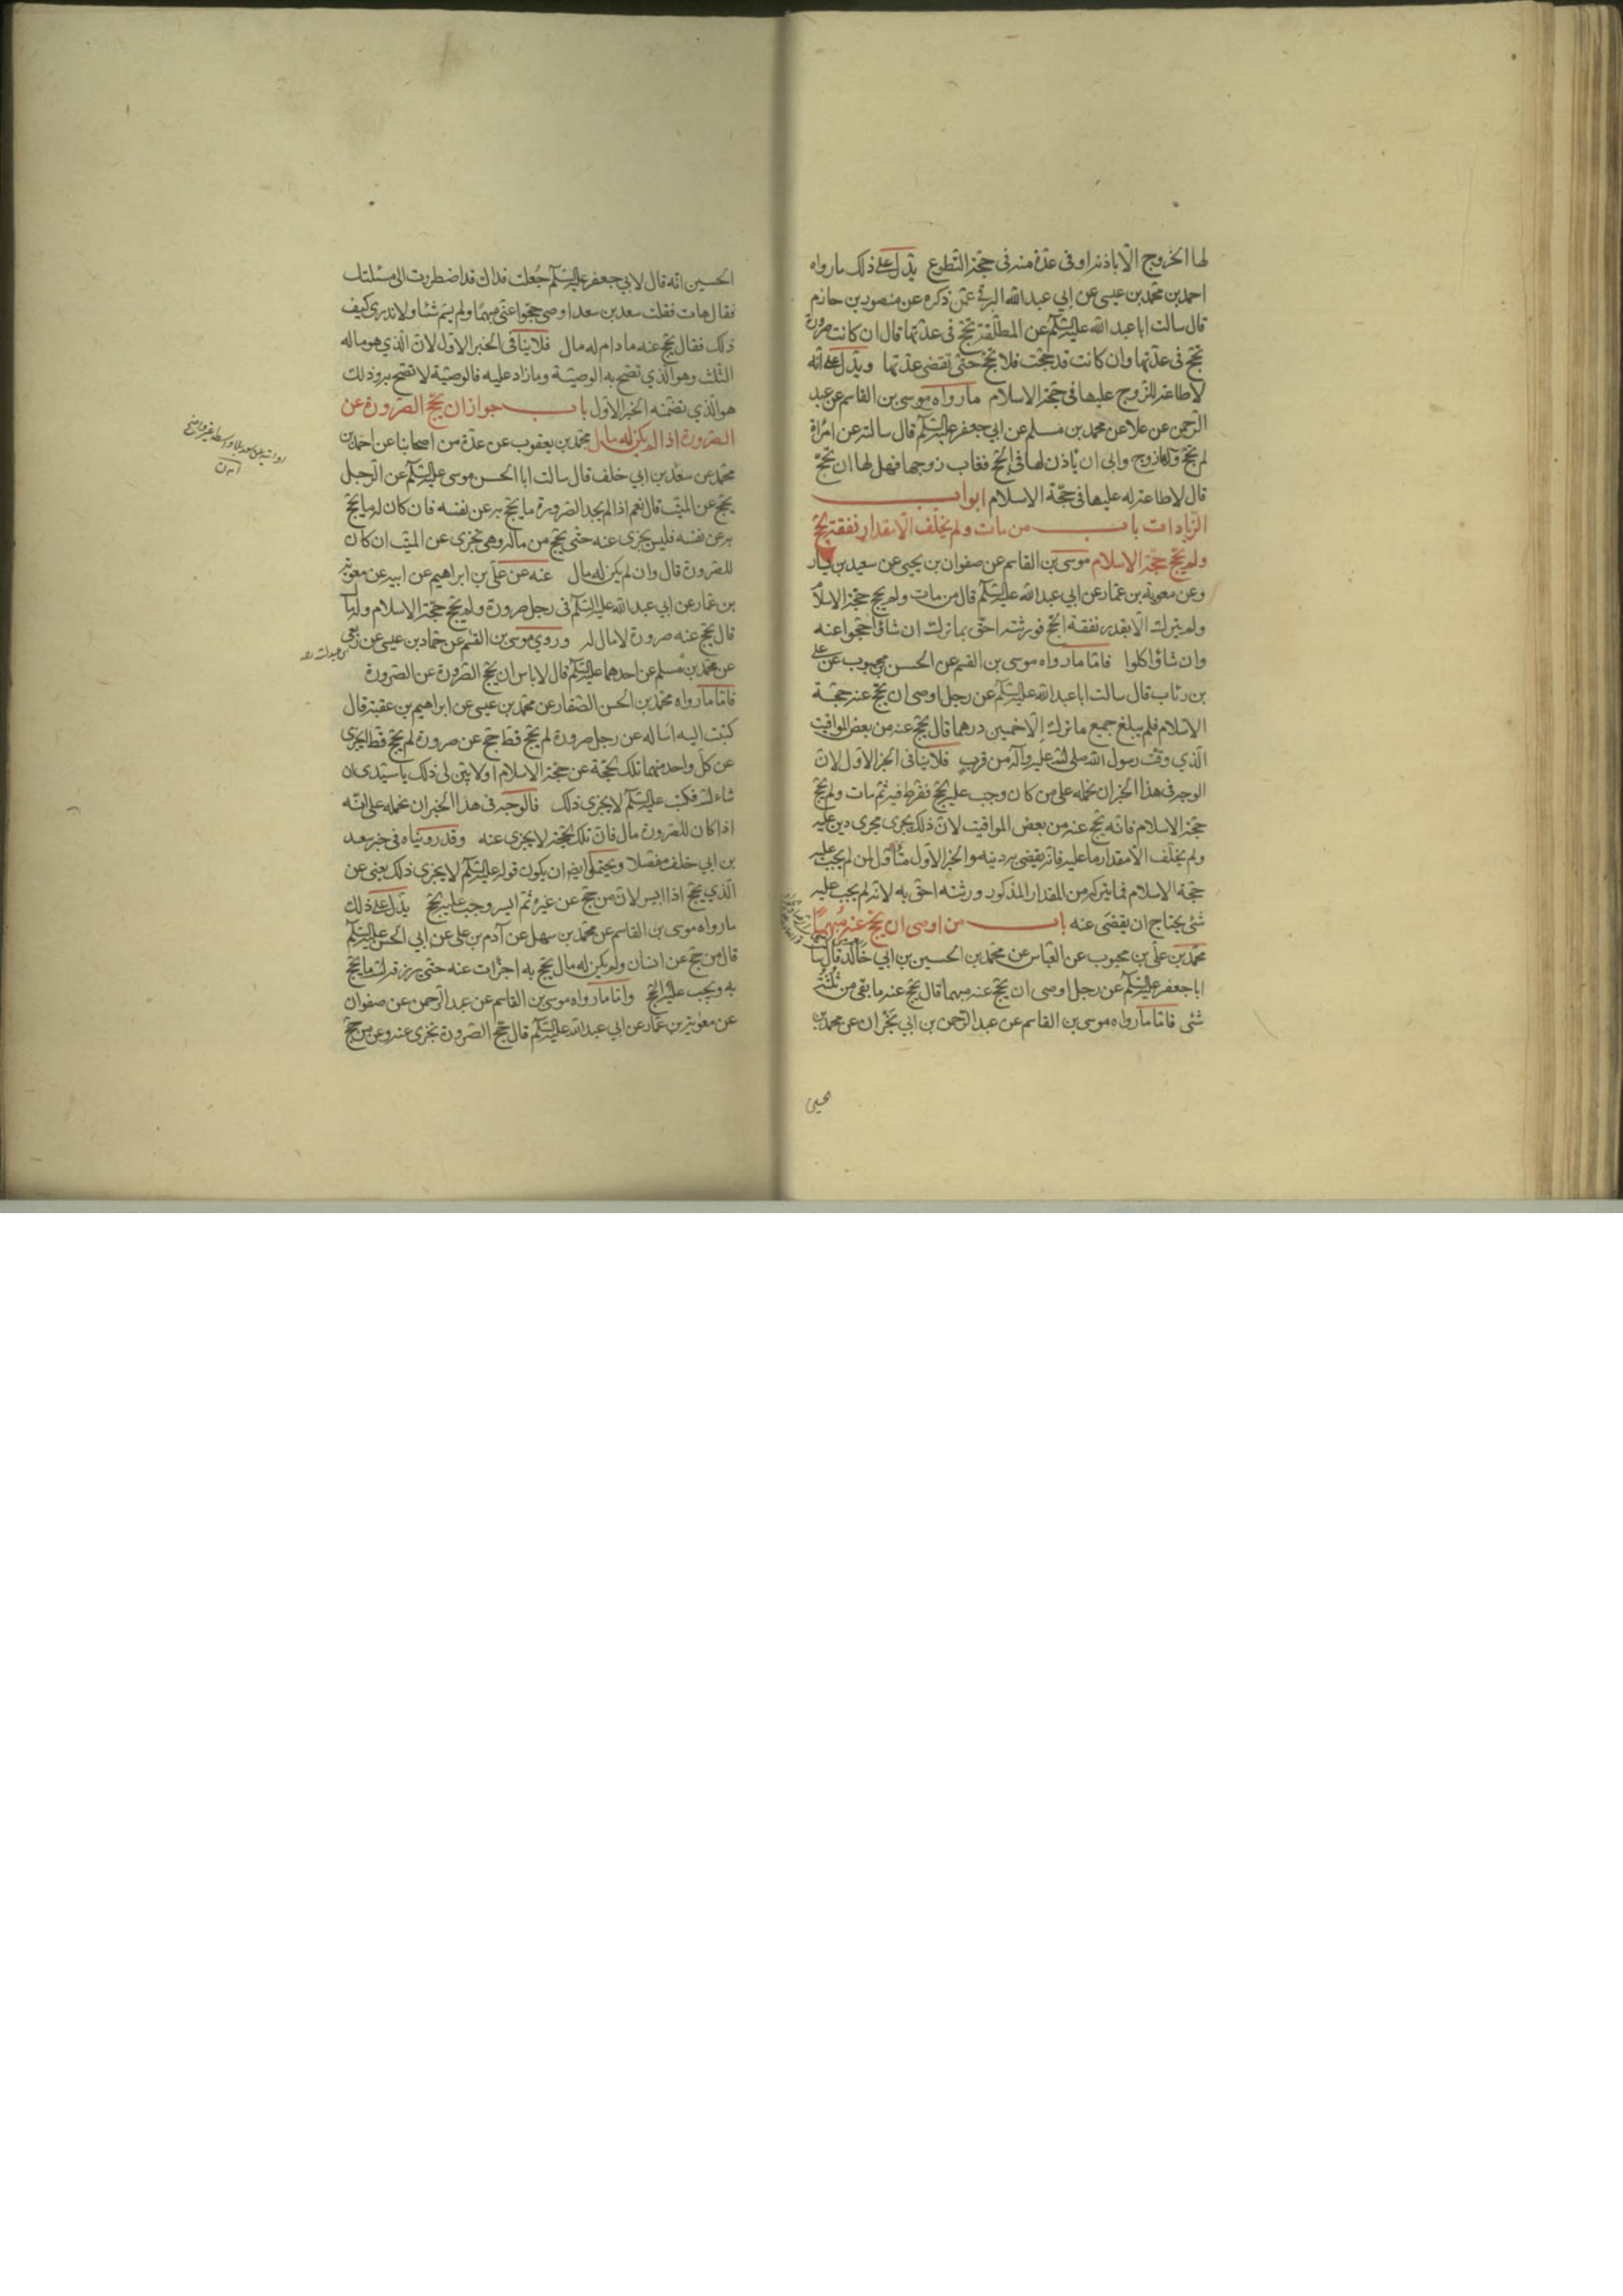 لها الخروج الا باذنه او فى عدة منه فى حجة التطوع يدل على ذلك ما رواه
احمد بن محمد بن عيسى عن ابي عبد الله البرقى عمن ذكره عن منصور بن حازم
قال سالت ابا عبد الله عليه السلم عن المطلقة تحج فى عدتها قال ان كانت صرورة
تحج فى عدتها وان كانت قد حجت فلا تحج حتى تقضى عدتها ويدل على انه
لا طاعة للزوج عليها فى حجة الاسلام ما رواه موسى بن القاسم عن عبد
الرحمن عن علا عن محمد بن مسلم عن ابي جعفر عليه السلم قال سالته عن امراة
لم تحج ولها زوج وابى ان ياذن لها فى الحج فغاب زوجها فهل لها ان تحج
قال لا طاعة له عليها فى حجة الاسلام ابواب
الزيادات باب من مات ولم يخلف الا مقدار نفقة الحج
ولم يحج حجة الاسلام موسى بن القاسم عن صفوان بن يحيى عن سعيد بن يسار
وعن معوية بن عمار عن ابي عبد الله عليه السلم قال من مات ولم يحج حجة الاسلام
ولم يترك الا بقدر نفقة الحج فورثته احق بما ترك ان شاؤا حجوا عنه
وان شاؤا اكلوا فاما ما رواه موسى بن القسم عن الحسن بن محبوب عن على
بن رئاب قال سالت ابا عبد الله عليه السلم عن رجل اوصى ان يحج عنه حجة
الاسلام فلم يبلغ جميع ما ترك الا خمسين درهما قال يحج عنه من بعض المواقيت
الذي وقت رسول الله صلى الله عليه وآله من قرب فلا ينافى الخبر الاول لان
الوجه فى هذا الخبر ان نحمله على من كان وجب عليه الحج ففرط فيه ثم مات ولم يحج
حجة الاسلام فانه يحج عنه من بعض المواقيت لان ذلك يجرى مجرى دين عليه
ولم يخلف الا مقدار ما عليه فانه يقضى به دينه والخبر الاول متناول لمن لم يجب عليه
حجة الاسلام فما يتركه من المقدار المذكور ورثته احق به لانه لم يجب عليه
شئ يحتاج ان يقضى عنه باب من اوصى ان يحج عنه مبهما
محمد بن على بن محبوب عن العباس عن محمد بن الحسين بن ابي خالد قال سالت
ابا جعفر عليه السلم عن رجل اوصى ان يحج عنه مبهما قال يحج عنه ما بقى من ثلثه
شئ فاما ما رواه موسى بن القاسم عن عبد الرحمن بن ابي نجران عن محمد بن
الحسين
الحسين انه قال لابي جعفر عليه السلم جعلت فداك قد اضطررت الى مسئلتك
فقال هات فقلت سعد بن سعد اوصى حجوا عنى مبهما ولم يسم شئا ولا ندرى كيف
ذلك فقال يحج عنه ما دام له مال فلا ينافى الخبر الاول لان الذي هو ماله
الثلث وهو الذي تصح به الوصية وما زاد عليه فالوصية لا تصح به وذلك
هو الذي تضمنه الخبر الاول باب جواز ان يحج الصرورة عن
الصرورة اذا لم يكن له مال محمد بن يعقوب عن عدة من اصحابنا عن احمد بن
محمد عن سعد بن ابي خلف قال سالت ابا الحسن موسى عليه السلم عن الرجل
يحج عن الميت قال نعم اذا لم يجد الصرورة ما يحج به عن نفسه فان كان له ما يحج
به عن نفسه فليس يجزى عنه حتى يحج من ماله وهى تجزى عن الميت ان كان
للصرورة قال وان لم يكن له مال عنه عن على بن ابراهيم عن ابيه عن معوية
بن عمار عن ابي عبد الله عليه السلم فى رجل صرورة ولم يحج حجة الاسلام وله مال
قال يحج عنه صرورة لا مال له وروي موسى بن القسم عن حماد بن عيسى عن ربعى
بن عبد الله
عن محمد بن مسلم عن احدهما عليه السلم قال لا باس ان يحج الصرورة عن الصرورة
فاما ما رواه محمد بن الحسن الصفار عن محمد بن عيسى عن ابراهيم بن عقبة قال
كتبت اليه اساله عن رجل صرورة لم يحج قط حج عن صرورة لم يحج قط ايجزى
عن كل واحد منهما تلك الحجة عن حجة الاسلام او لا بين لى ذلك يا سيدى ان
شاء الله فكتب عليه السلم لا يجزى ذلك فالوجه فى هذا الخبر ان نحمله على انه
اذا كان للصرورة مال فان تلك الحجة لا يجزى عنه وقد رويناه فى خبر سعد
بن ابي خلف مفصلا ويحتمل ايضا ان يكون قوله عليه السلم لا يجزى ذلك يعنى عن
الذي يحج اذا ايسر لان من حج عن غيره ثم ايسر وجب عليه الحج يدل على ذلك
ما رواه موسى بن القاسم عن محمد بن سهل عن آدم بن على عن ابي الحسن عليه السلم
قال من حج عن انسان ولم يكن له مال يحج به اجزات عنه حتى يرزقه الله ما يحج
به ويجب عليه الحج واما ما رواه موسى بن القاسم عن عبد الرحمن عن صفوان
عن معوية بن عمار عن ابي عبد الله عليه السلم قال حج الصرورة تجزى عنه وعن من حج